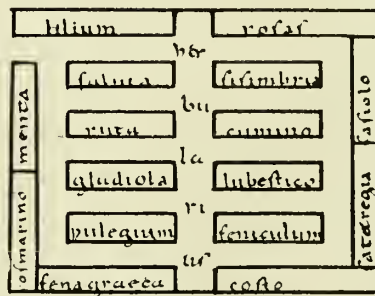 lilium rosas
her
saluia sisimbria
bu
ruta cumino
la
gladiola lubestico
ri
pulegium feniculum
us
fenagraeca costo
menta
osmarino
fasiolo
sataregia